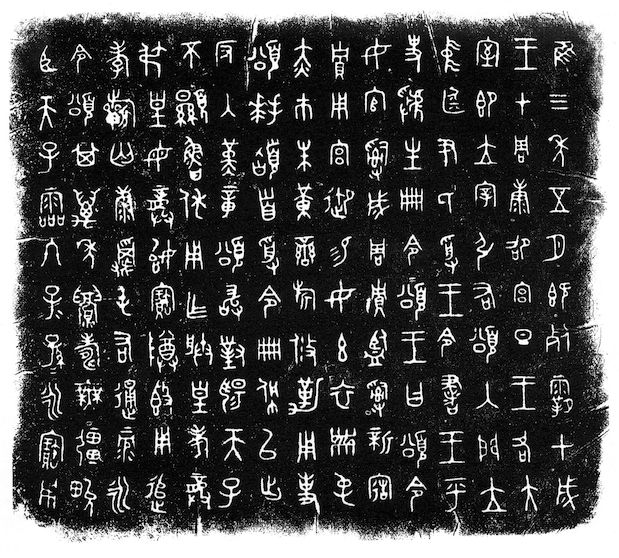 隹三年五月既死霸甲戌
王才周康卲宮旦王各大
室即立宰引右頌入門立
中廷尹氏受王令書王乎
史虢生冊令頌王曰頌令
女官𤔲成周貯監𤔲新造
貯用宮御易女玄衣黹屯
赤巿朱黃䜌旂攸勒用事
頌拜𩒨首受令冊佩以出
反入堇章頌敢對揚天子
不顯魯休用乍朕皇考龏
弔皇母龏始寶尊鼎用追
孝𣄨匄康䨴屯右通彔永
令頌其萬年眉壽無疆畯
臣天子霝冬子孫永寶用